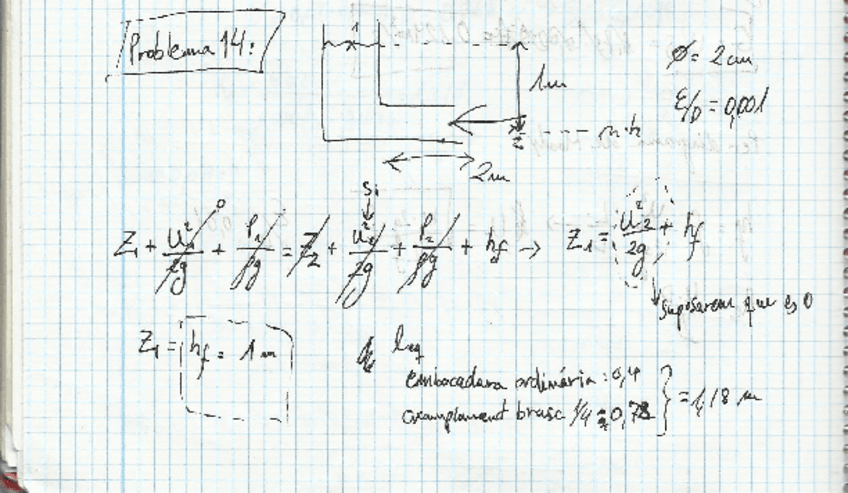 Problema 14:
1
1m
Ø = 2 cm
ε/D = 0,001
2m
Si
Z₁ + U₁²/2g + P₁/ρg = Z₂ + U₂²/2g + P₂/ρg + hf → Z₁ = U₂²/2g + hf
0
suposarem que és 0
Z₁ = hf = 1 m
leq
embocadura ordinària: 0,4
eixamplament brusc 1/4 = 0,78
= 1,18 m